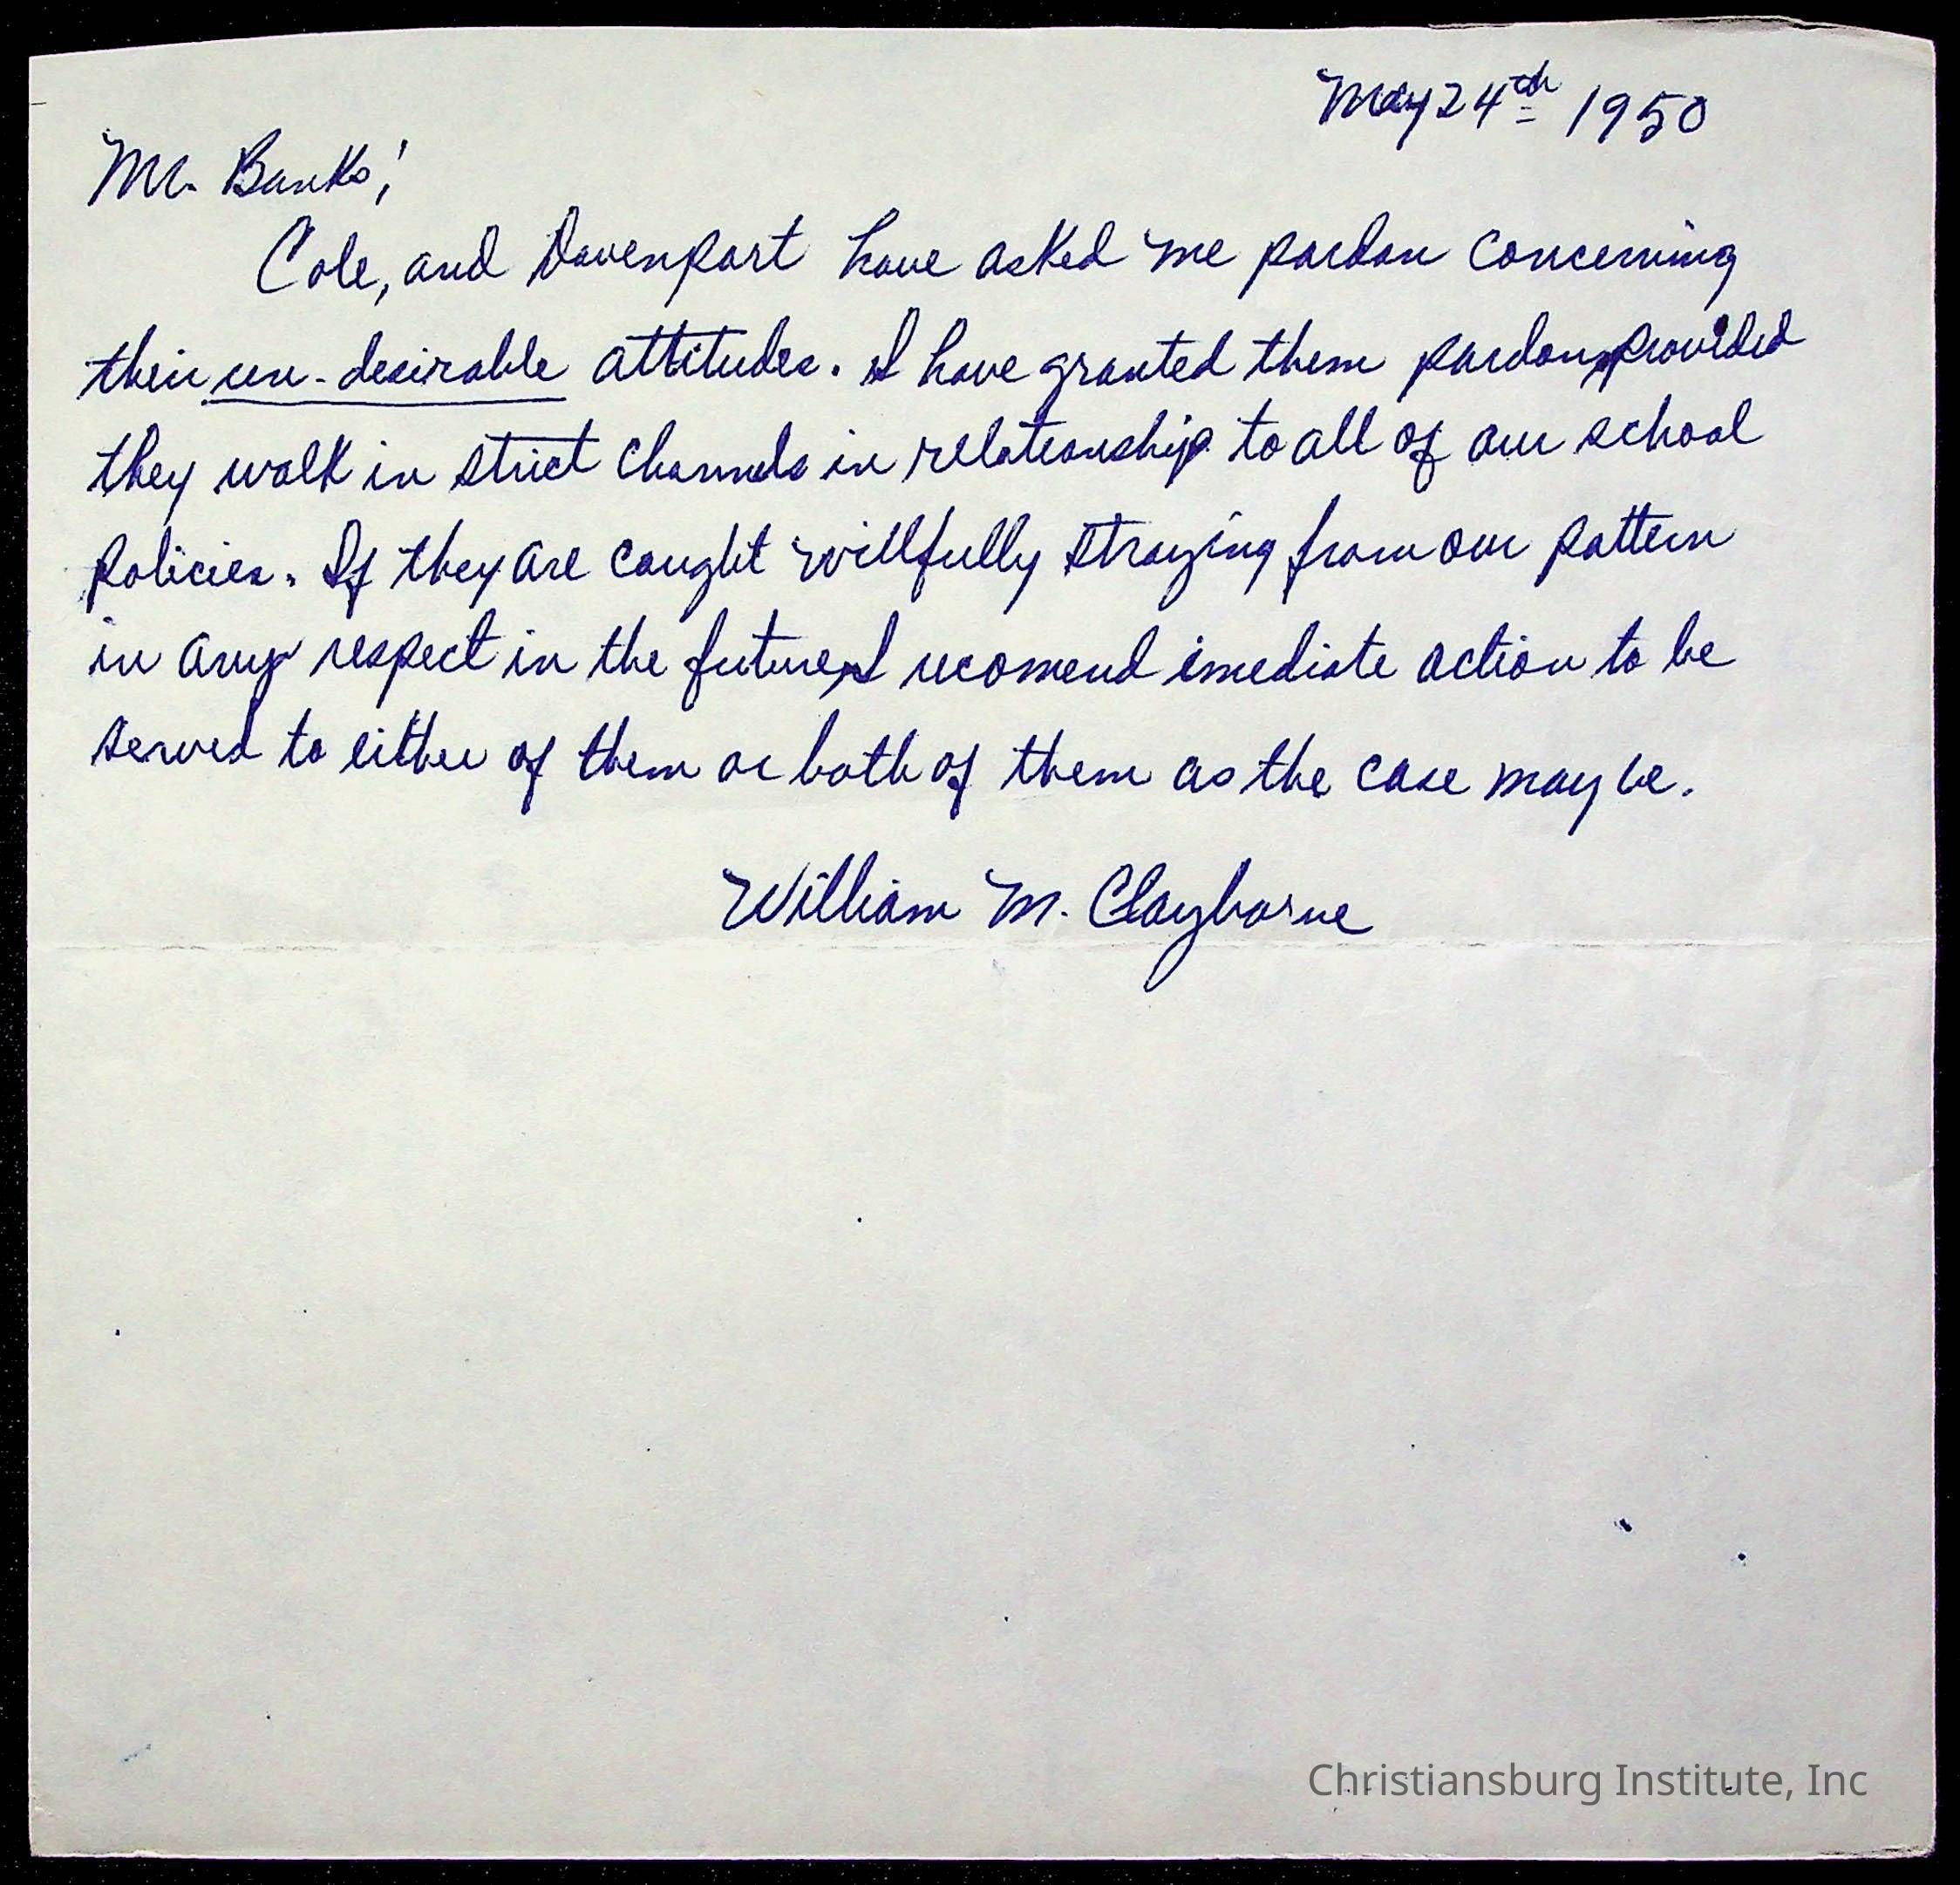 May 24th 1950
Mr. Banks!
Cole, and Davenport have asked me pardon concerning
their un-desirable attitudes. I have granted them pardon, provided
they walk in strict channels in relationship to all of our school
policies. If they are caught willfully straying from our pattern
in any respect in the future, I recomend imediate action to be
served to either of them or both of them as the case may be.
William M. Clayborne
Christiansburg Institute, Inc